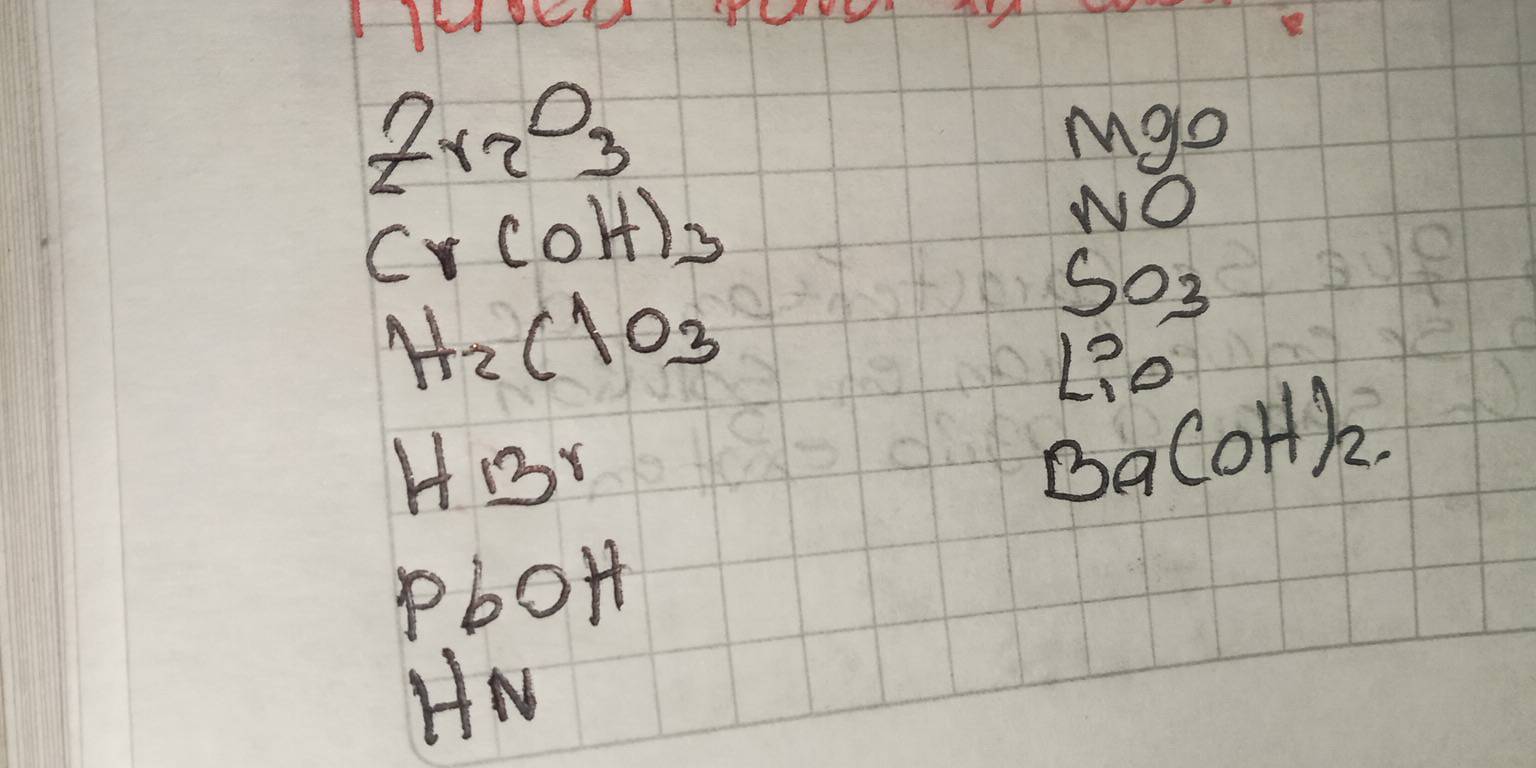 Zr2O3
Cr(OH)3
H2ClO3
HBr
PbOH
HN
MgO
NO
SO3
LiO
Ba(OH)2.